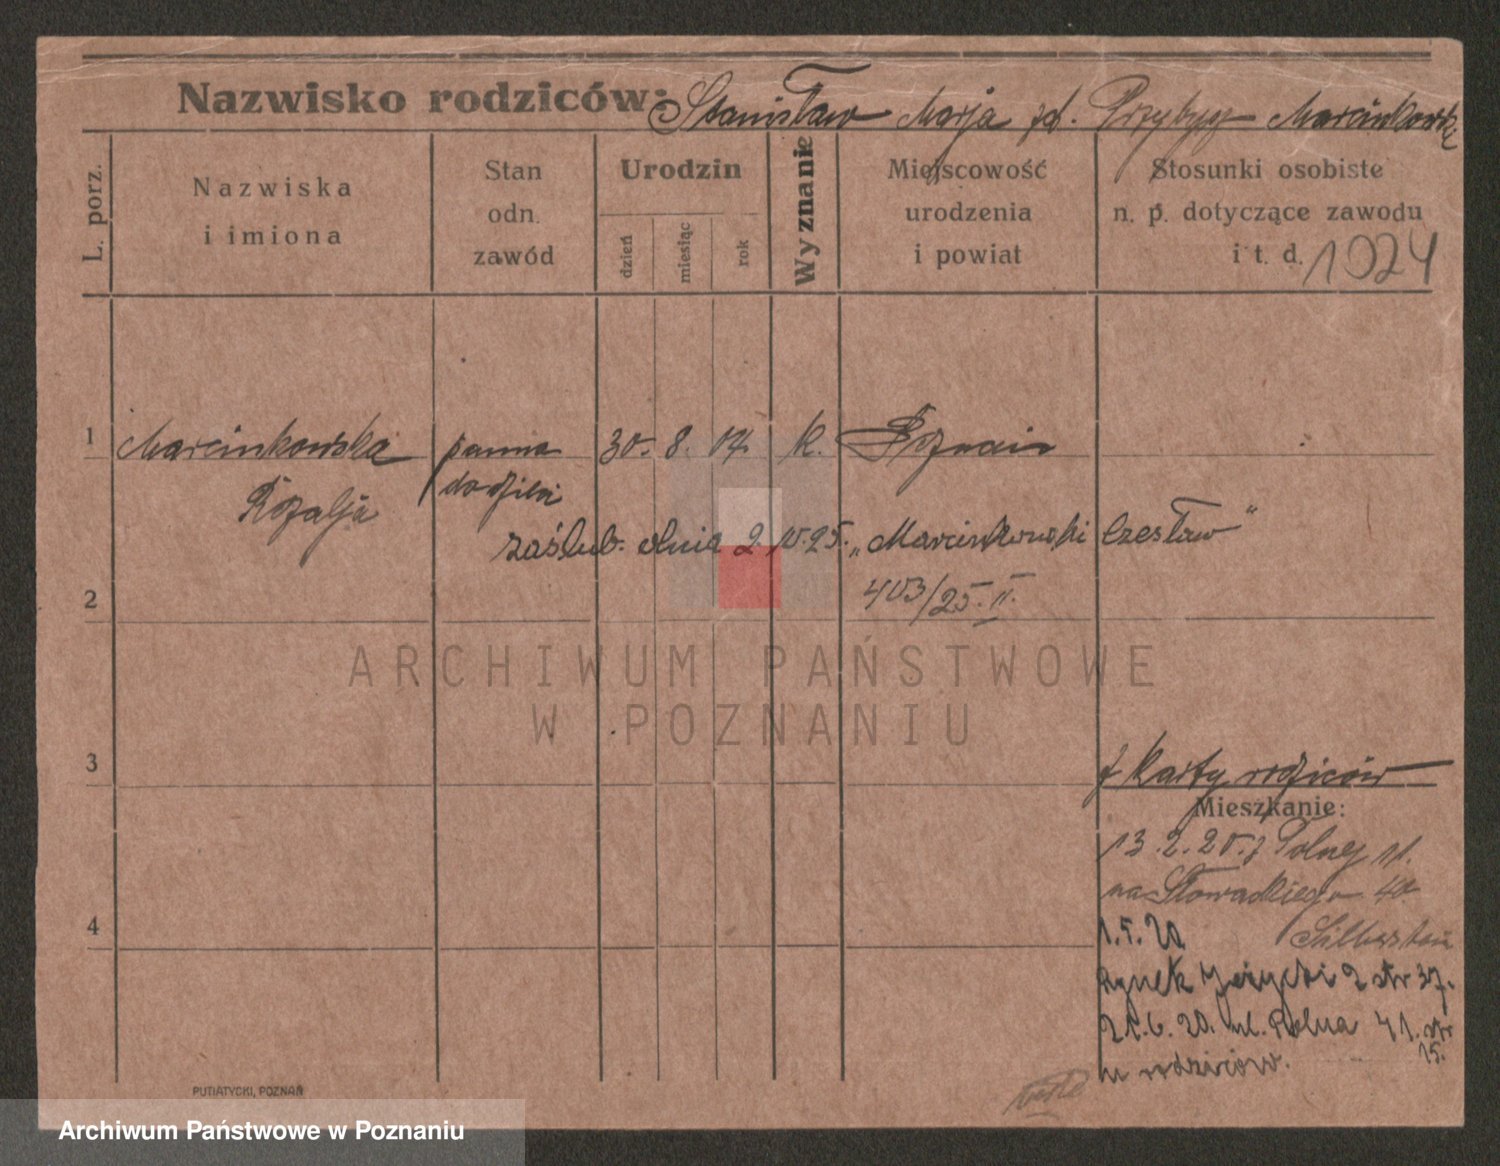 Nazwisko rodziców: Stanisław Marja zd. Przybysz Marcinkowski
L. porz.
Nazwiska
i imiona
Stan
odn.
zawód
Urodzin
dzień
miesiąc
rok
Wyznanie
Miejscowość
urodzenia
i powiat
Stosunki osobiste
n. p. dotyczące zawodu
i t. d. 1924
1 Marcinkowska panna 30. 8. 04 k. Poznań
Rozalja
zaślub. dnia 2. 25. „Marcinkowski Czesław"
403/25. II.
2
ARCHIWUM PAŃSTWOWE
W POZNANIU
3
z karty rodziców
Mieszkanie:
13.2.20. z Polnej 11.
na Słowackiego
4
1.5.20
Rynek Jeżycki 2 str 37.
21.6.20. ul. Polna 41. str
15.
u rodziców.
PUTIATYCKI, POZNAŃ
Archiwum Państwowe w Poznaniu